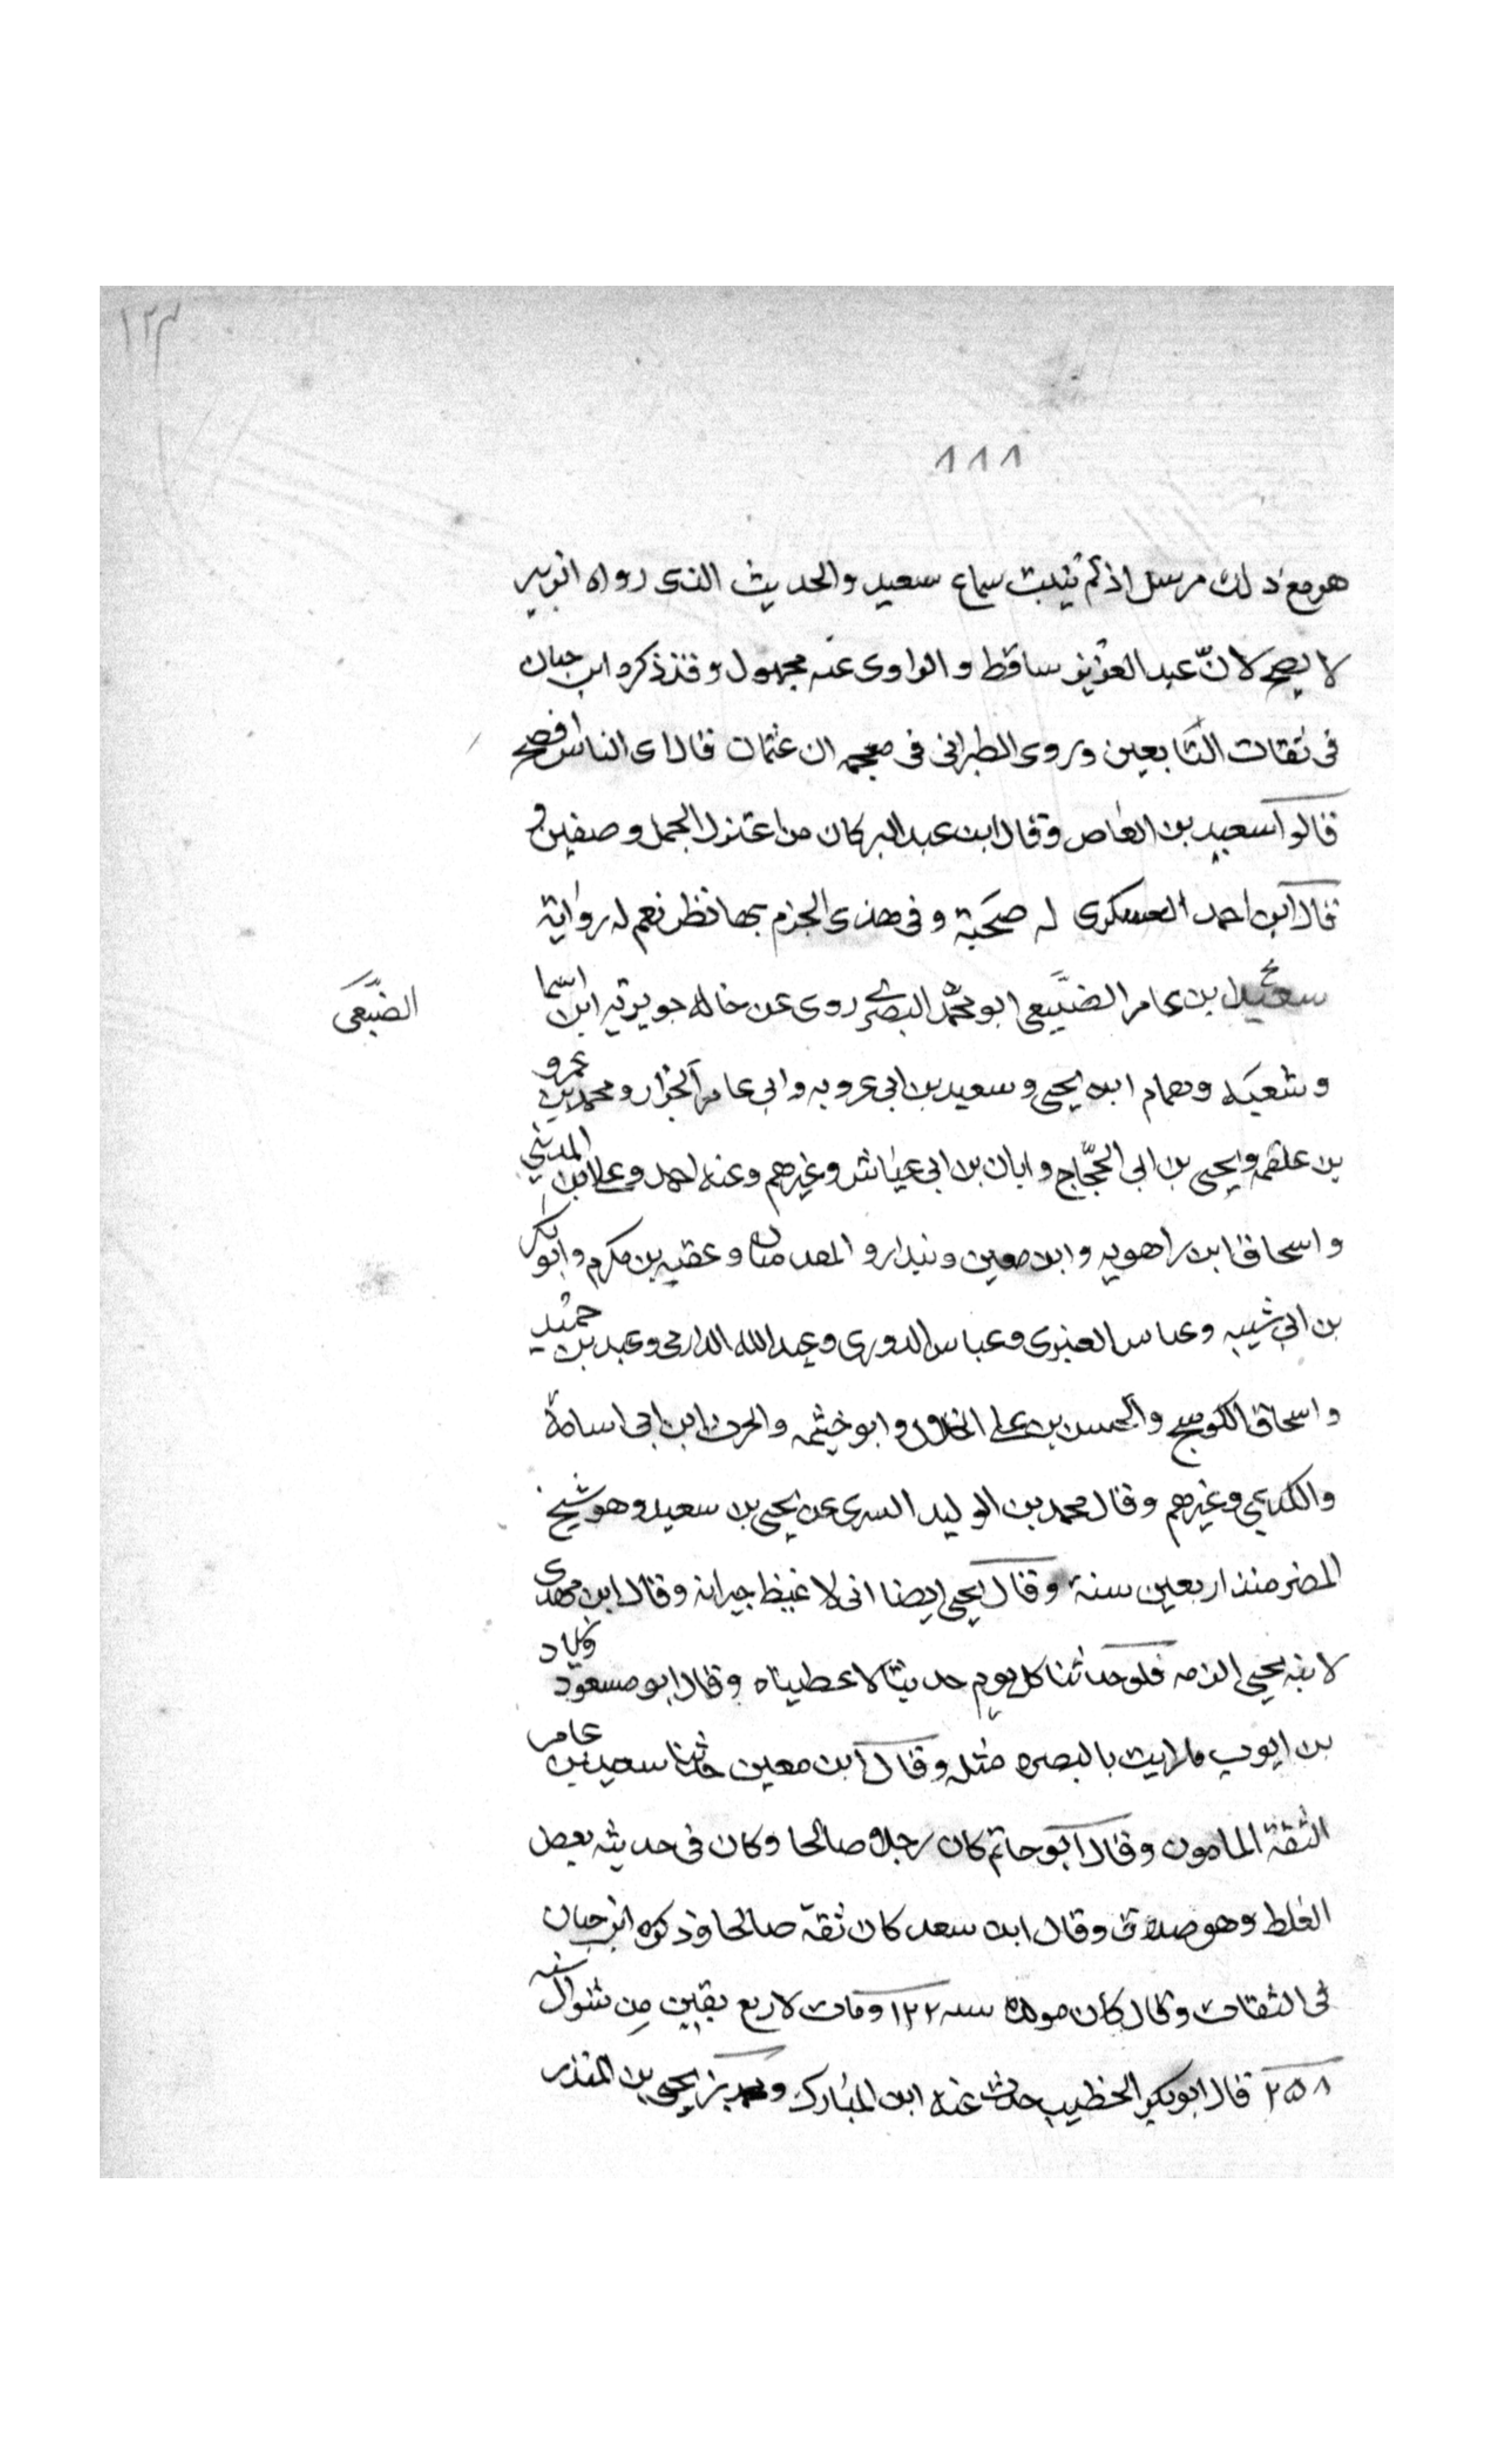 ١٢٣
١١١
هو مع ذلك مرسل اذ لم يثبت سماع سعيد والحديث الذى رواه الزبير
لا يصح لانّ عبد العزيز ساقط والراوى عنه مجهول وقد ذكره ابن حبان
فى ثقات التابعين وروى الطبرانى فى معجمه ان عثمان قال اى الناس افصح
قالوا سعيد بن العاص وقال ابن عبد البر كان من اعتزل الجمل وصفين و
قال ابن احمد العسكرى له صحبة وفى هذى الجزم بها نظر نعم له رواية
سعيد بن عامر الضبيعى ابو محمد البصرى روى عن خاله جويرية ابن اسما
الضبعى
وشعبه وهمام ابن يحيى وسعيد بن ابى عروبه وابى عامر الخزار ومحمد بن عمرو
بن علقمه ويحيى بن ابى الحجّاج وابان بن ابى عياش وغيرهم وعنه احمد وعلى ابن المدينى
واسحاق ابن راهويه وابن معين وبندار و المقدمان وعقبه بن مكرم وابو بكر
بن ابى شيبه وعباس العنبرى وعباس الدورى وعبد الله الدارمى وعبد بن حميد
واسحاق الكوسج والحسن بن على الخلال وابو خيثمه والحرث ابن ابى اسامة
والكديمى وغيرهم وقال محمد بن الوليد السرى عن يحيى بن سعيد وهو شيخ
المصر منذ اربعين سنة وقال يحيى ايضا انى لاغبط جيرانه وقال ابن مهدى
لابنه يحيى الزمه فلو حدثنا كل يوم حديثا لاعطيناه وقال ابو مسعود
بن ايوب ما رايت بالبصره مثله وقال ابن معين حدثنا سعيد بن عامر
الثقة المامون وقال ابو حاتم كان رجلا صالحا وكان فى حديثه بعض
الغلط وهو صدوق وقال ابن سعد كان ثقة صالحا وذكره ابن حبان
فى الثقات وقال كان مولده سنه ١٢٢ ومات لاربع بقين من شوال سنه
٢٥٨ قال ابو بكر الخطيب حدث عنه ابن المبارك و بن يحيى بن المنذر